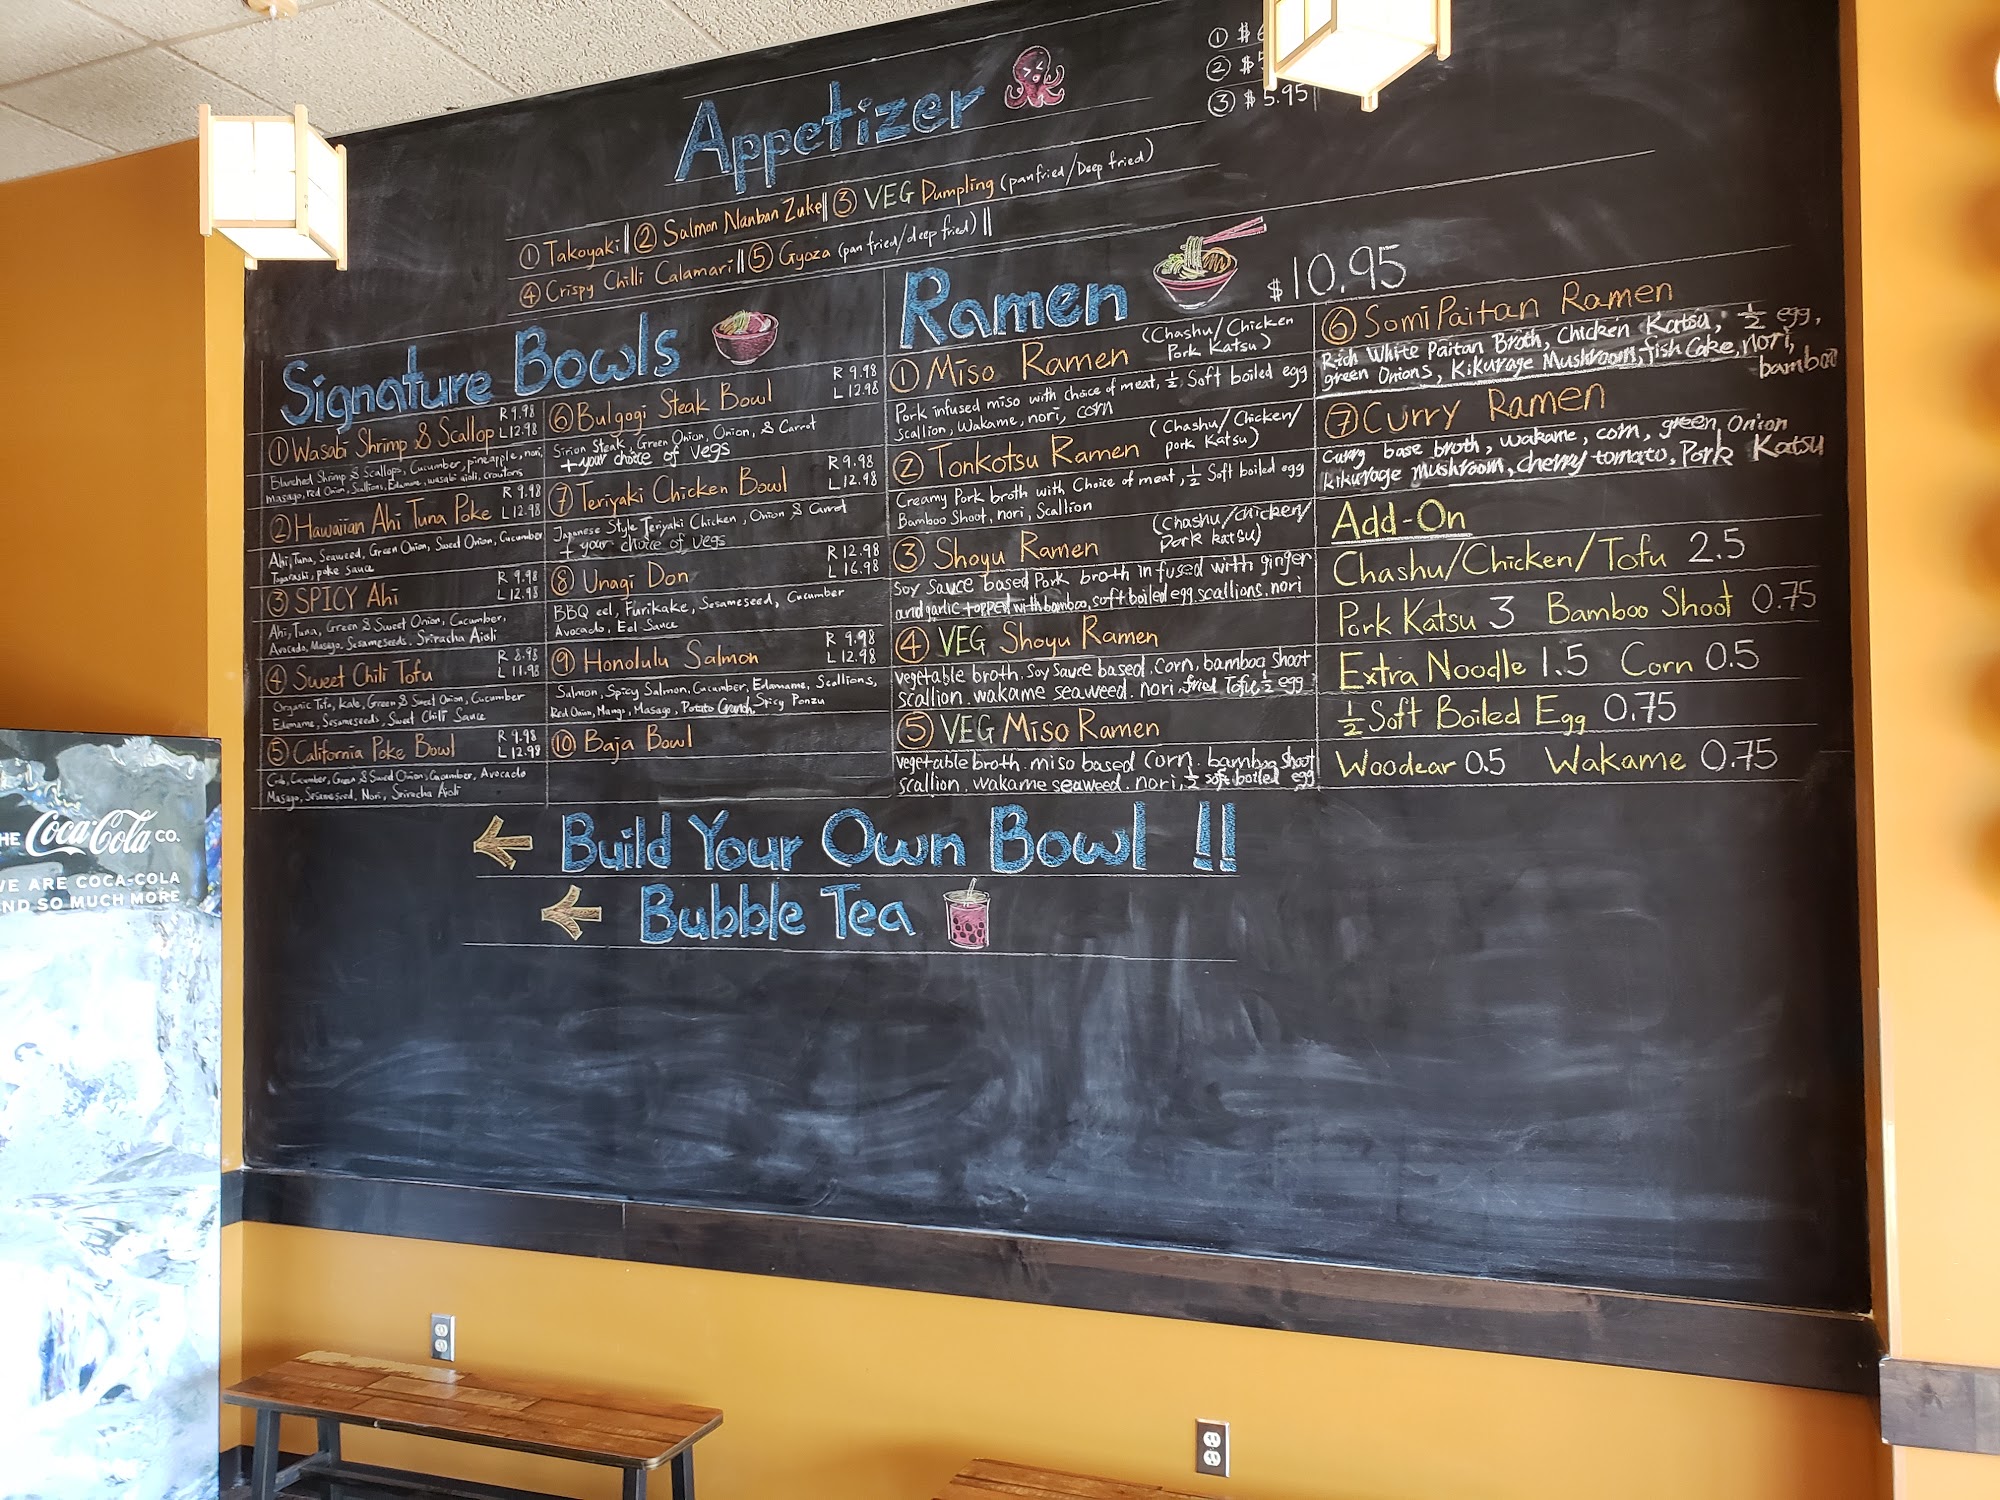 Appetizer
① $ 6
② $5
③ $ 5.95
① Takoyaki || ② Salmon Nanban Zuke || ③ VEG Dumpling (pan fried/Deep fried)
④ Crispy Chilli Calamari || ⑤ Gyoza (pan fried/deep fried) ||
Signature Bowls
① Wasabi Shrimp & Scallop R 9.98
L 12.98
Blanched Shrimp & Scallops, Cucumber, pineapple, nori,
Masago, Red Onion, Scallions, Edamame, wasabi aioli, croutons
② Hawaiian Ahi Tuna Poke R 9.98
L 12.98
Ahi, Tuna, Seaweed, Green Onion, Sweet Onion, Cucumber
Togarashi, poke sauce
③ SPICY Ahi R 9.98
L 12.98
Ahi, Tuna, Green & Sweet Onion, Cucumber,
Avocado, Masago, Sesameseeds, Sriracha Aioli
④ Sweet Chili Tofu R 8.98
L 11.98
Organic Tofu, Kale, Green & Sweet Onion, Cucumber
Edamame, Sesameseeds, Sweet Chilli Sauce
⑤ California Poke Bowl R 9.98
L 12.98
Crab, Cucumber, Green & Sweet Onion, Cucumber, Avocado
Masago, Sesameseed, Nori, Sriracha Aioli
⑥ Bulgogi Steak Bowl R 9.98
L 12.98
Sirloin Steak, Green Onion, Onion, & Carrot
+ your choice of vegs
⑦ Teriyaki Chicken Bowl R 9.98
L 12.98
Japanese Style Teriyaki Chicken, Onion & Carrot
+ your choice of vegs
⑧ Unagi Don R 12.98
L 16.98
BBQ eel, Furikake, Sesameseed, Cucumber
Avocado, Eel Sauce
⑨ Honolulu Salmon R 9.98
L 12.98
Salmon, Spicy Salmon, Cucumber, Edamame, Scallions,
Red Onion, Mango, Masago, Potato Crunch, Spicy Ponzu
⑩ Baja Bowl
Ramen $10.95
① Miso Ramen (Chashu/Chicken
Pork Katsu)
Pork infused miso with choice of meat, ½ Soft boiled egg
Scallion, Wakame, nori, corn
② Tonkotsu Ramen (Chashu/Chicken/
pork Katsu)
Creamy Pork broth with Choice of meat, ½ Soft boiled egg
Bamboo Shoot, nori, Scallion
③ Shoyu Ramen (Chashu/chicken/
pork katsu)
Soy Sauce based Pork broth infused with ginger
and garlic topped with bamboo, soft boiled egg, scallions, nori
④ VEG Shoyu Ramen
vegetable broth. Soy Sauce based. corn. bamboo shoot
scallion. wakame seaweed. nori, fried Tofu, ½ egg
⑤ VEG Miso Ramen
vegetable broth. miso based corn. bamboo shoot
scallion. wakame seaweed. nori, ½ soft boiled egg
⑥ SomiPaitan Ramen
Rich White Paitan Broth, Chicken Katsu, ½ egg,
green Onions, Kikurage Mushroom, fish cake, nori,
bamboo
⑦ Curry Ramen
Curry base broth, wakame, corn, green onion
kikurage mushroom, cherry tomato, Pork Katsu
Add-On
Chashu/Chicken/Tofu 2.5
Pork Katsu 3 Bamboo Shoot 0.75
Extra Noodle 1.5 Corn 0.5
½ Soft Boiled Egg 0.75
Woodear 0.5 Wakame 0.75
← Build Your Own Bowl !!
← Bubble Tea
THE Coca-Cola CO.
WE ARE COCA-COLA
AND SO MUCH MORE